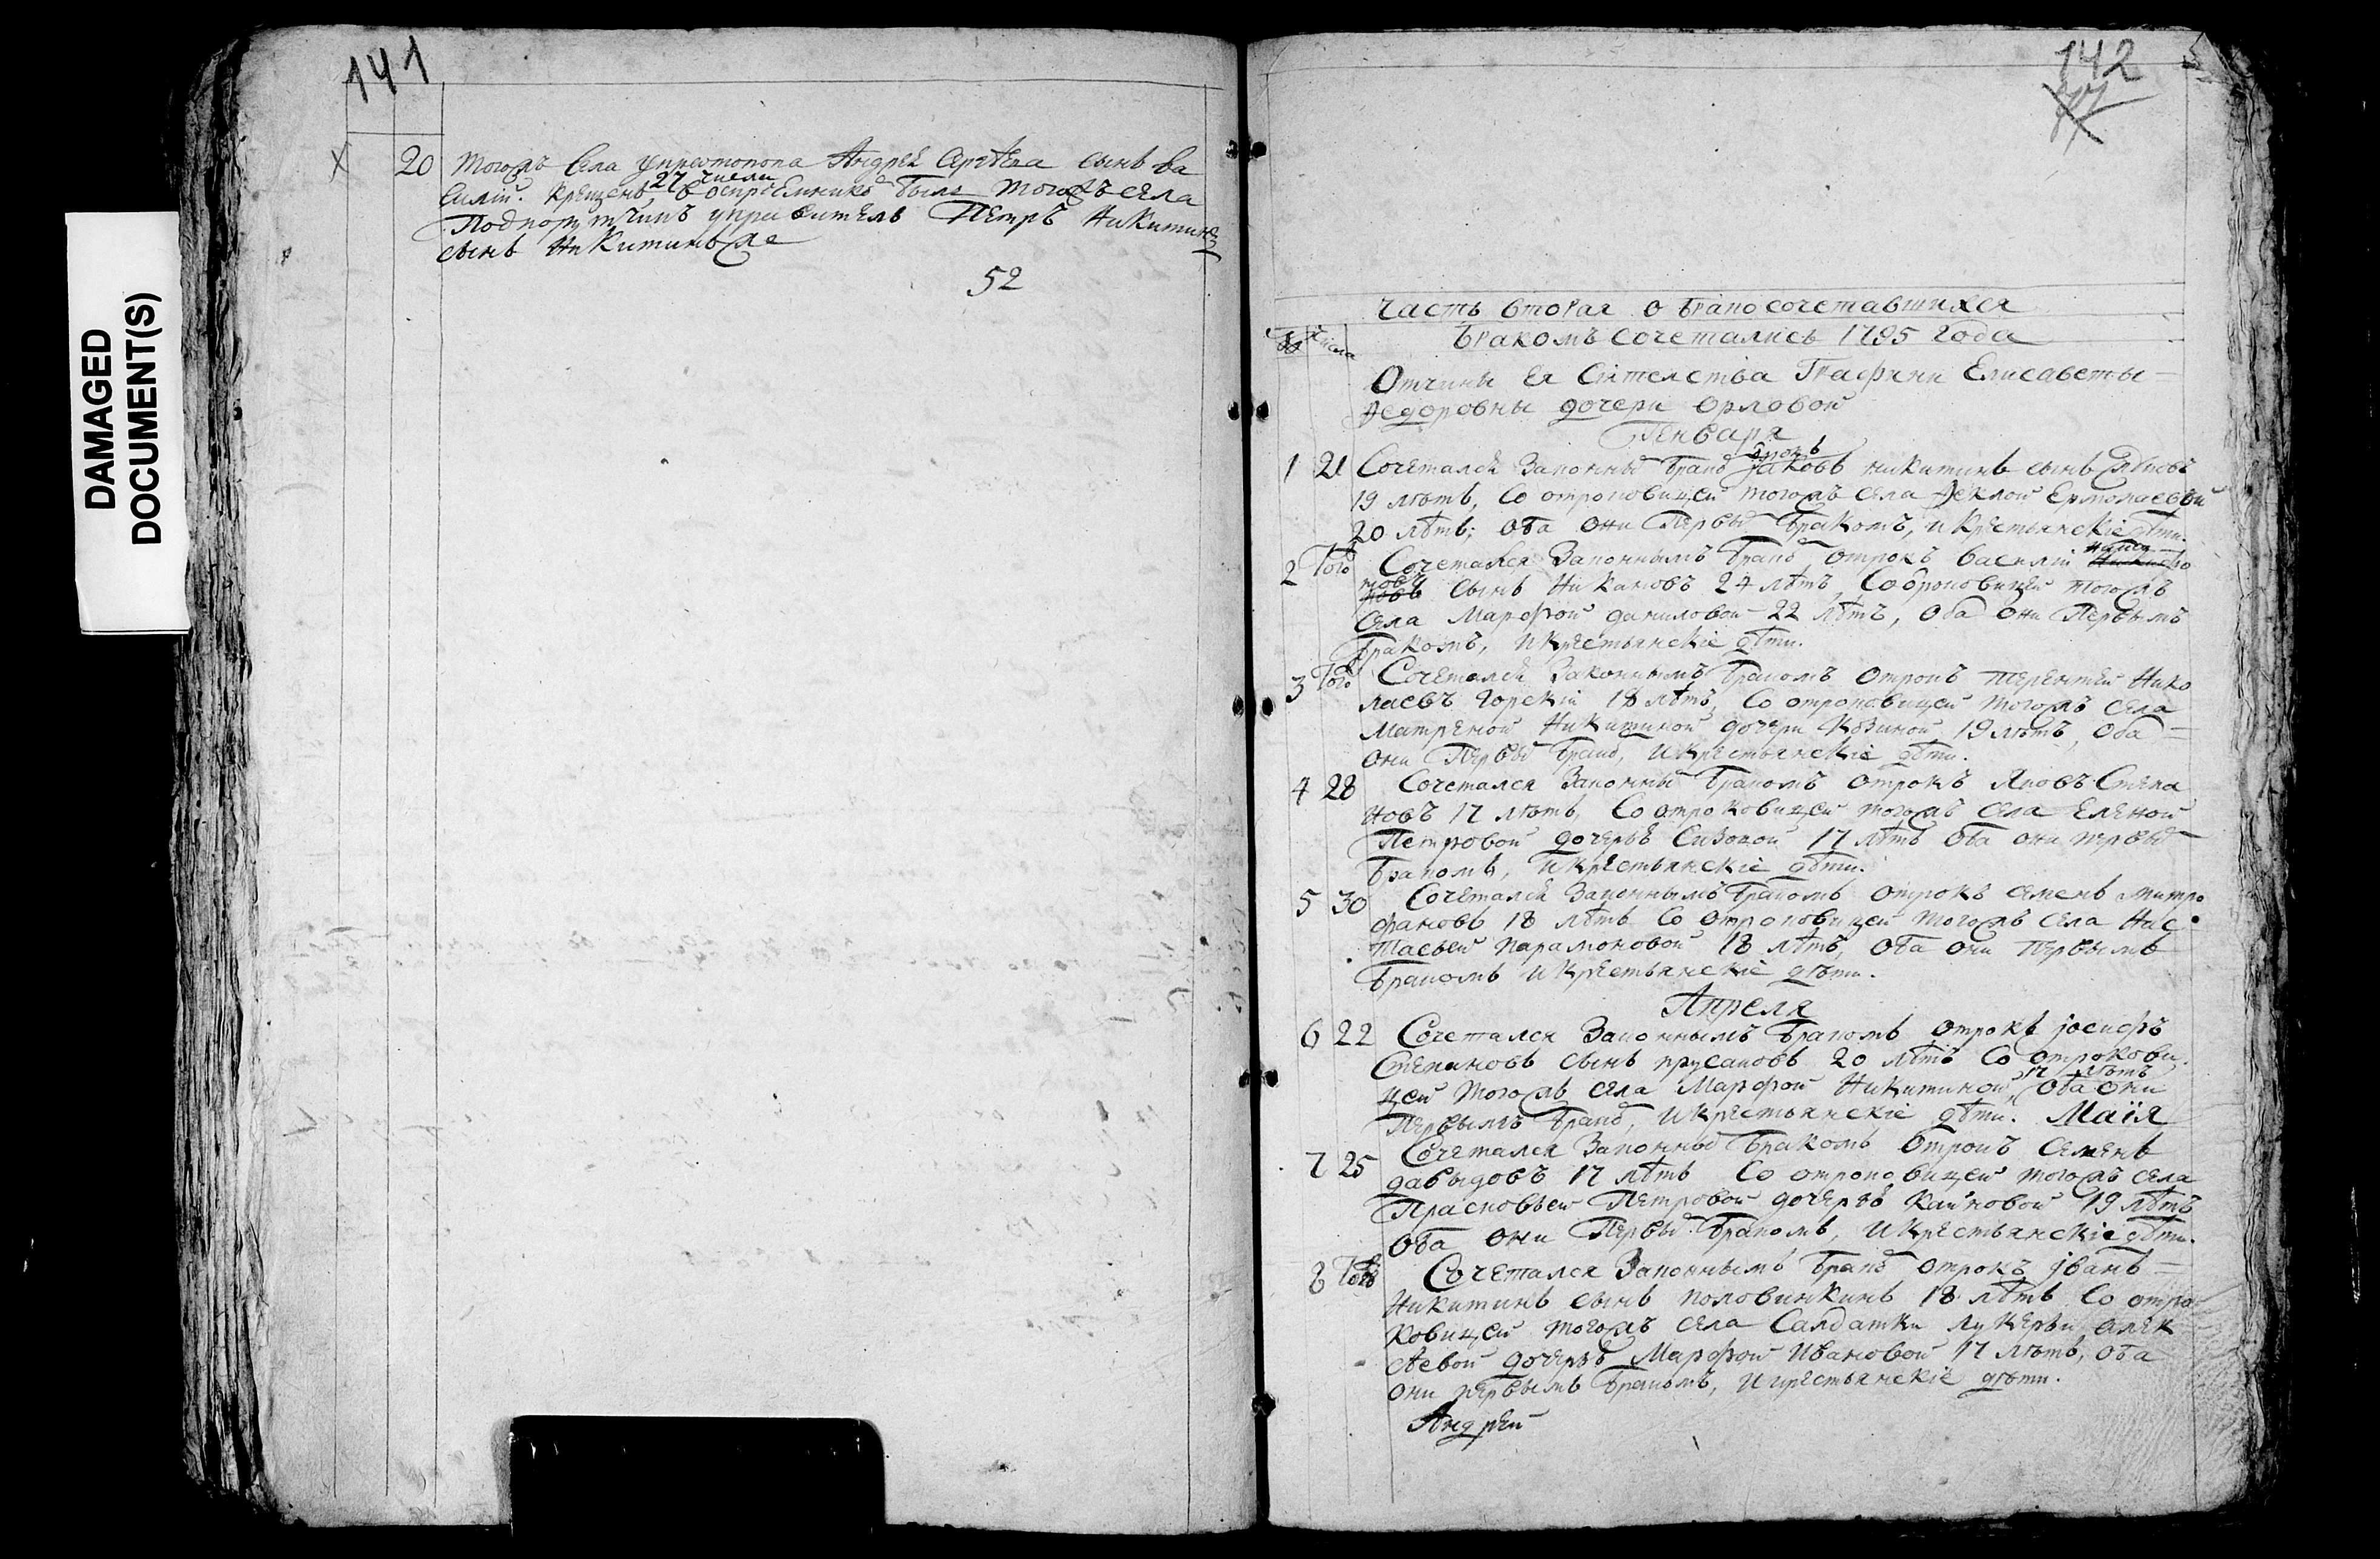 141
20 тогожъ села у протопопа Андрея Сергѣева сынъ Ва
силій. крещенъ 27 числа, воспрѣемникъ былъ тогожъ села
управитель Петръ Никитинъ
сынъ Никитинъ же
52
DAMAGED
DOCUMENT(S)
142
Часть вторая о бракосочетавшихся
числа
Бракомъ сочетались 1795 года
Отчины Ея Сіятелства Графини Елисаветы
Федоровны дочери Орловой
Генваря
1 21 Сочетался законны бракō отрокъ Іаковъ Никитинъ сынъ
19 лѣтъ, со отроковицей тогожъ села Феклой Ермолаевой
20 лѣтъ; оба они первы бракомъ, и крестьянскіе дѣти.
2 Того Сочетался законнымъ бракō отрокъ Василій
сынъ Никаковъ 24 лѣтъ, со отроковицей тогожъ
села Марфой Даниловой 22 лѣтъ, оба они первымъ
бракомъ, и крестьянскіе дѣти.
3 Того Сочетался законнымъ бракомъ отрокъ Терентей Нико
лаевъ Горскій 18 лѣтъ, со отроковицей тогожъ села
Матреной Никитиной дочери Козиной 19 лѣтъ, оба
они первы бракō, и крестьянскіе дѣти.
4 28 Сочетался законны бракомъ отрокъ Яковъ Степа
новъ 17 лѣтъ, со отроковицей тогожъ села Еленой
Петровой дочерью Сизовой 17 лѣтъ оба они первы
бракомъ, и крестьянскіе дѣти.
5 30 Сочетался законнымъ бракомъ отрокъ Семенъ Митро
фановъ 18 лѣтъ со отроковицей тогожъ села Нас
тасьей Парамоновой 18 лѣтъ, оба они первымъ
бракомъ и крестьянскіе дѣти.
Апреля
6 22 Сочетался законнымъ бракомъ отрокъ Іосифъ
Степановъ сынъ Прусаковъ 20 лѣтъ со отрокови
цей тогожъ села Марфой Никитиной, 17 лѣтъ оба они
первымъ бракō, и крестьянскіе дѣти. Маія
7 25 Сочетался законны бракомъ отрокъ Семенъ
Давыдовъ 17 лѣтъ со отроковицей тогожъ села
Прасковьей Петровой дочерью Каиновой 19 лѣтъ
оба они первы бракомъ, и крестьянскіе дѣти.
8 Того Сочетался законнымъ бракō отрокъ Іванъ
Никитинъ сынъ Половинкинъ 18 лѣтъ со отро
ковицей тогожъ села салдатки Лукерьи Алек
сѣевой дочерью Марфой Ивановой 17 лѣтъ, оба
они первымъ бракомъ, и крестьянскіе дѣти.
Андрей